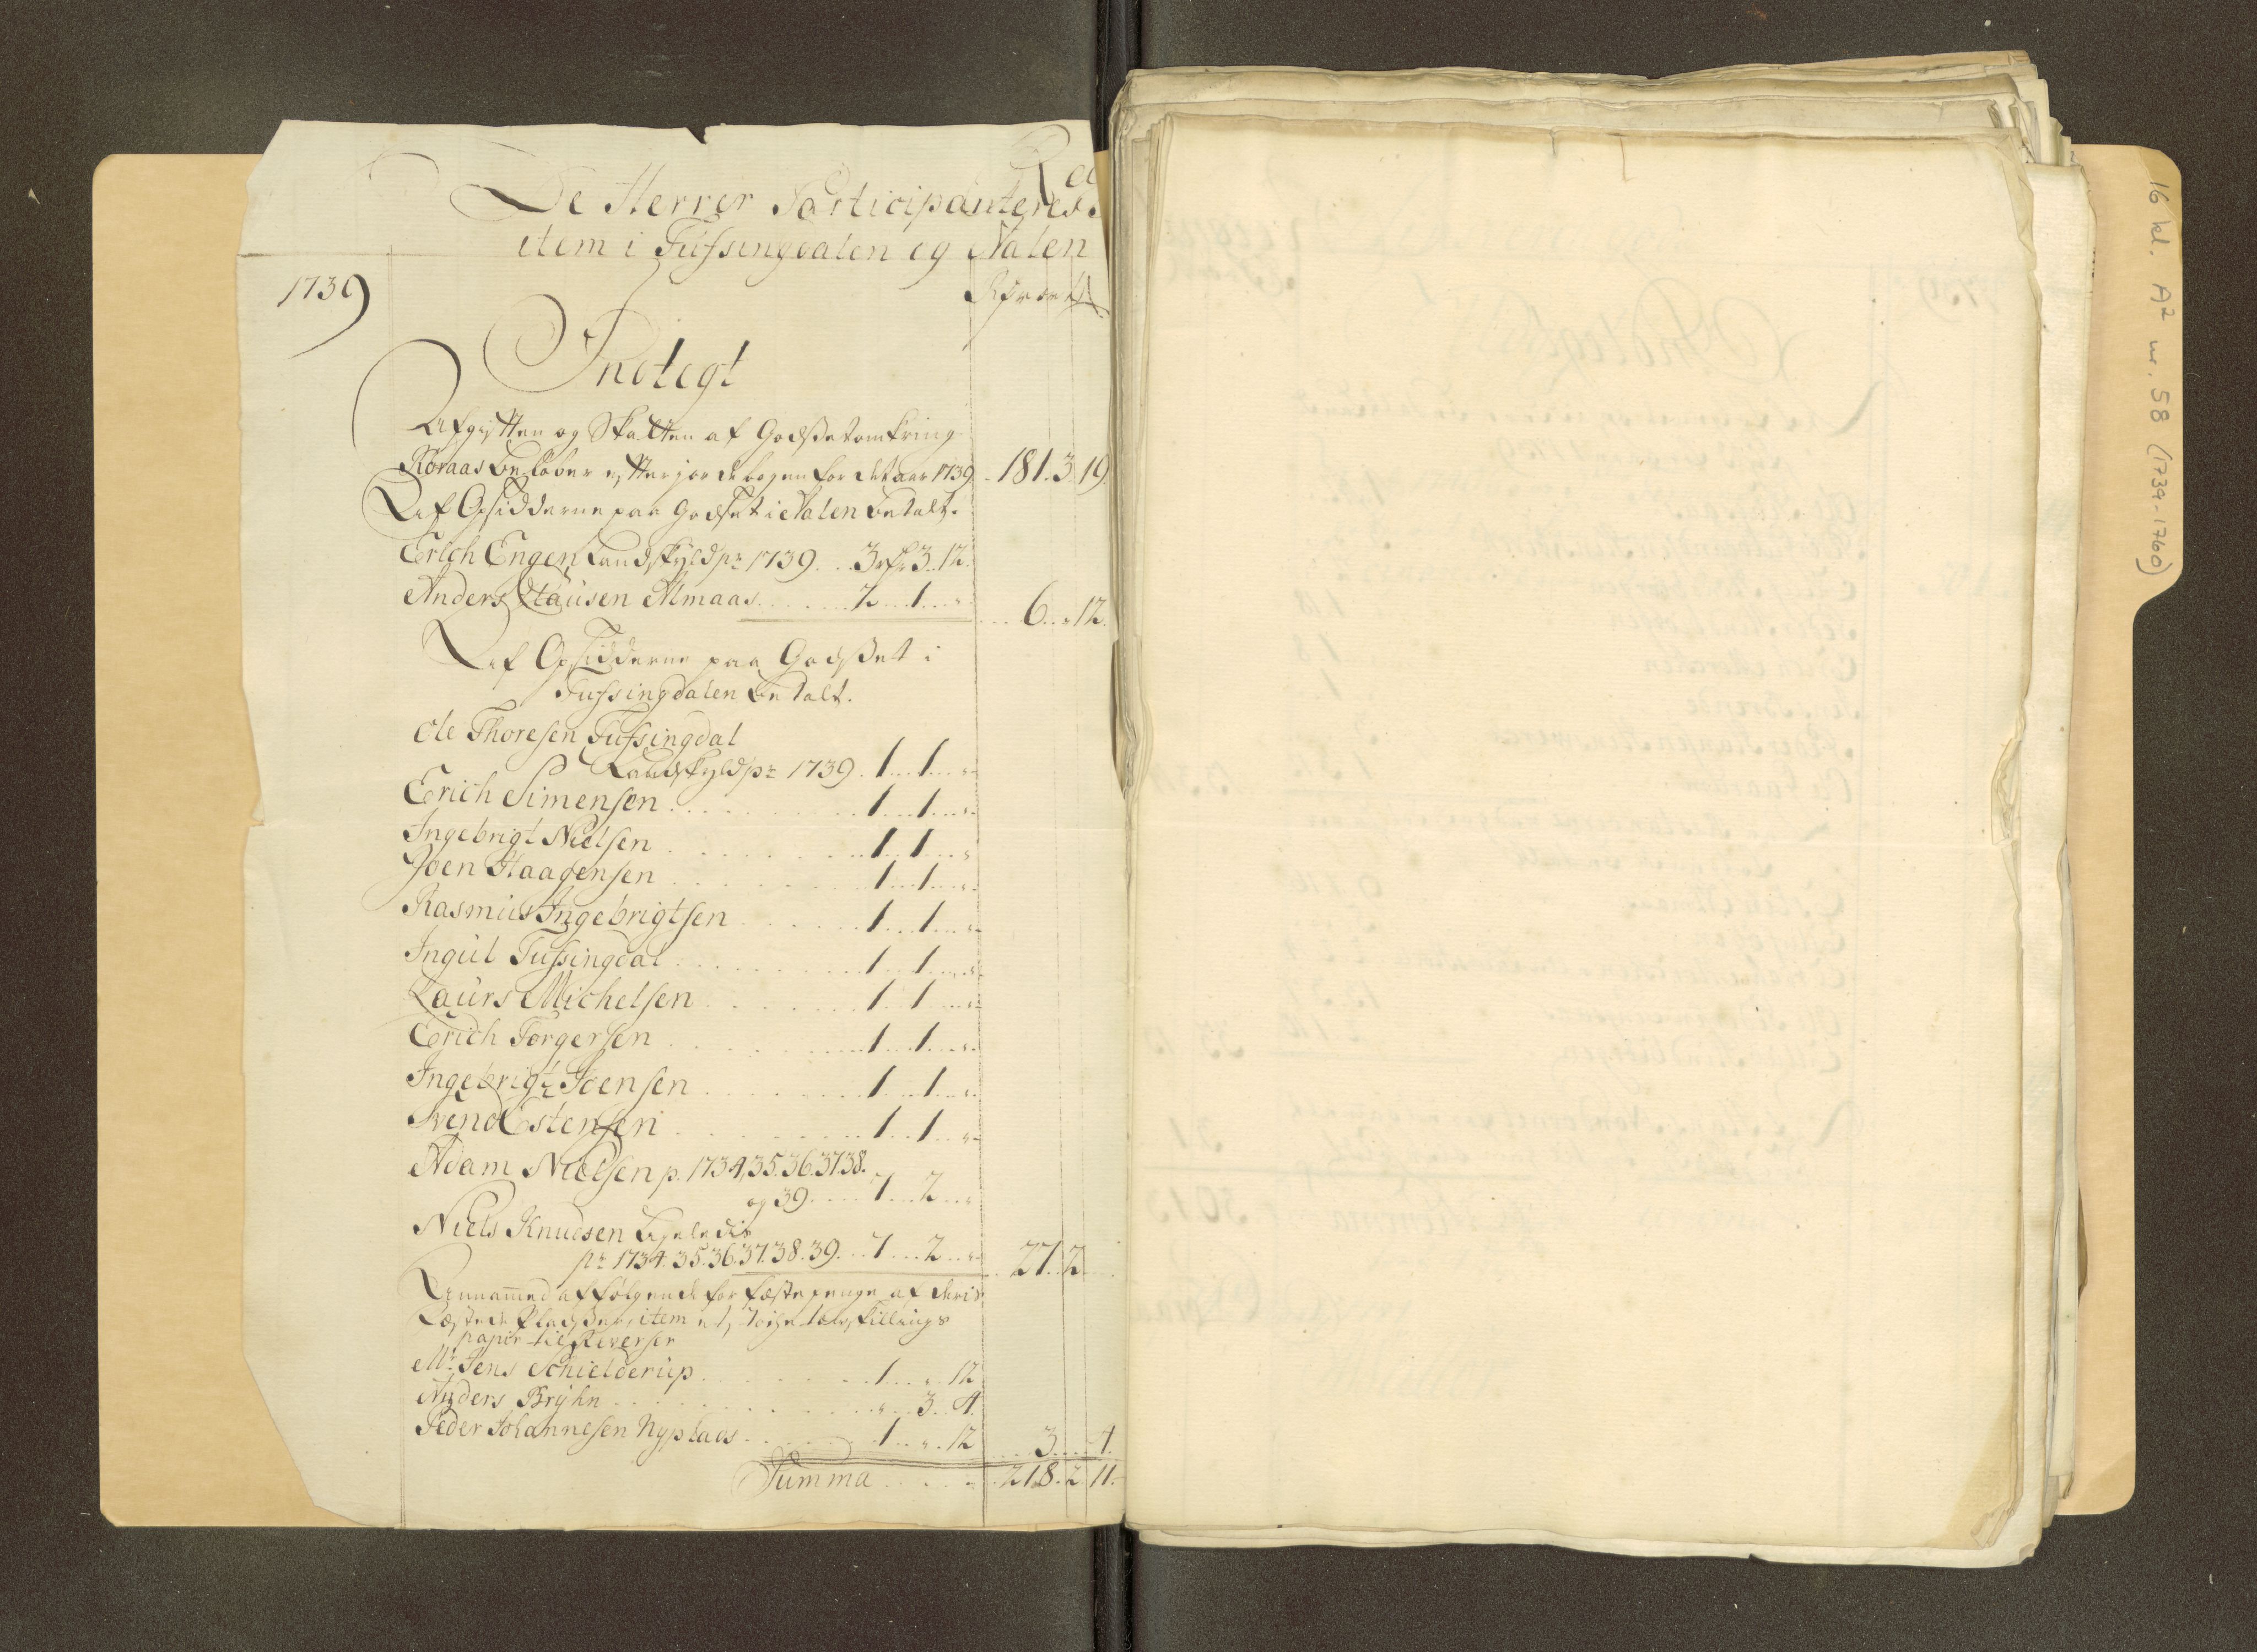 De Herrer Participanteres
item i Tufsingdalen og Dalen
1739
Indtegt
Afgifften og Skatten af Godset omkring
Røraas beløber efter jordebogen for det aar 1739 . 181. 3. 19.
Af Opsidderne paa Godset i Dalen betalt.
Erich Engen Landskyld pr 1739 . . . 3 rdr 3. 12.
Anders Clausen Almaas . . . . . . 2 . . 1 . . „ . . . 6 . . „ 12.
Af Opsidderne paa Godset i
Tufsingdalen betalt.
Ole Thoresen Tufsingdal
Landskyld pr 1739 . 1 . . 1 . . „
Erich Simensen . . . . . . 1 . . 1 . . „
Ingebrigt Nielsen . . . . . . 1 . . 1 . . „
Joen Haagensen . . . . . . 1 . . 1 . . „
Rasmus Ingebrigtsen . . . . . . 1 . . 1 . . „
Ingul Tufsingdal . . . . . . 1 . . 1 . . „
Laurs Michelsen . . . . . . 1 . . 1 . . „
Erich Torgersen . . . . . . 1 . . 1 . . „
Ingebrigt Joensen . . . . . . 1 . . 1 . . „
Svend Estensen . . . . . . 1 . . 1 . . „
Adam Nielsen p. 1734, 35. 36. 37. 38.
og 39 . . . . 7 . . 2 . . „
Niels Knudsen ligeledis
pr 1734. 35. 36. 37. 38. 39. . . 7 . . . 2 . . „ . . 27. . 2 . . .
annammed af følgende for fæstepenge af deris
Fæstede Pladser, item
papir til Reverser
Mr Jens Schielderup . . . . . . 1 . . „ . 12
Anders Bryhn . . . . . . „ . . 3 . . 4.
Peder Johannesen Nyplads . . . . . . 1 . . „ . 12 . . . 3 . . . . 4.
Summa . . . . . . 218. 2. 11.
16 kl. A2 nr. 58 (1739-1760)